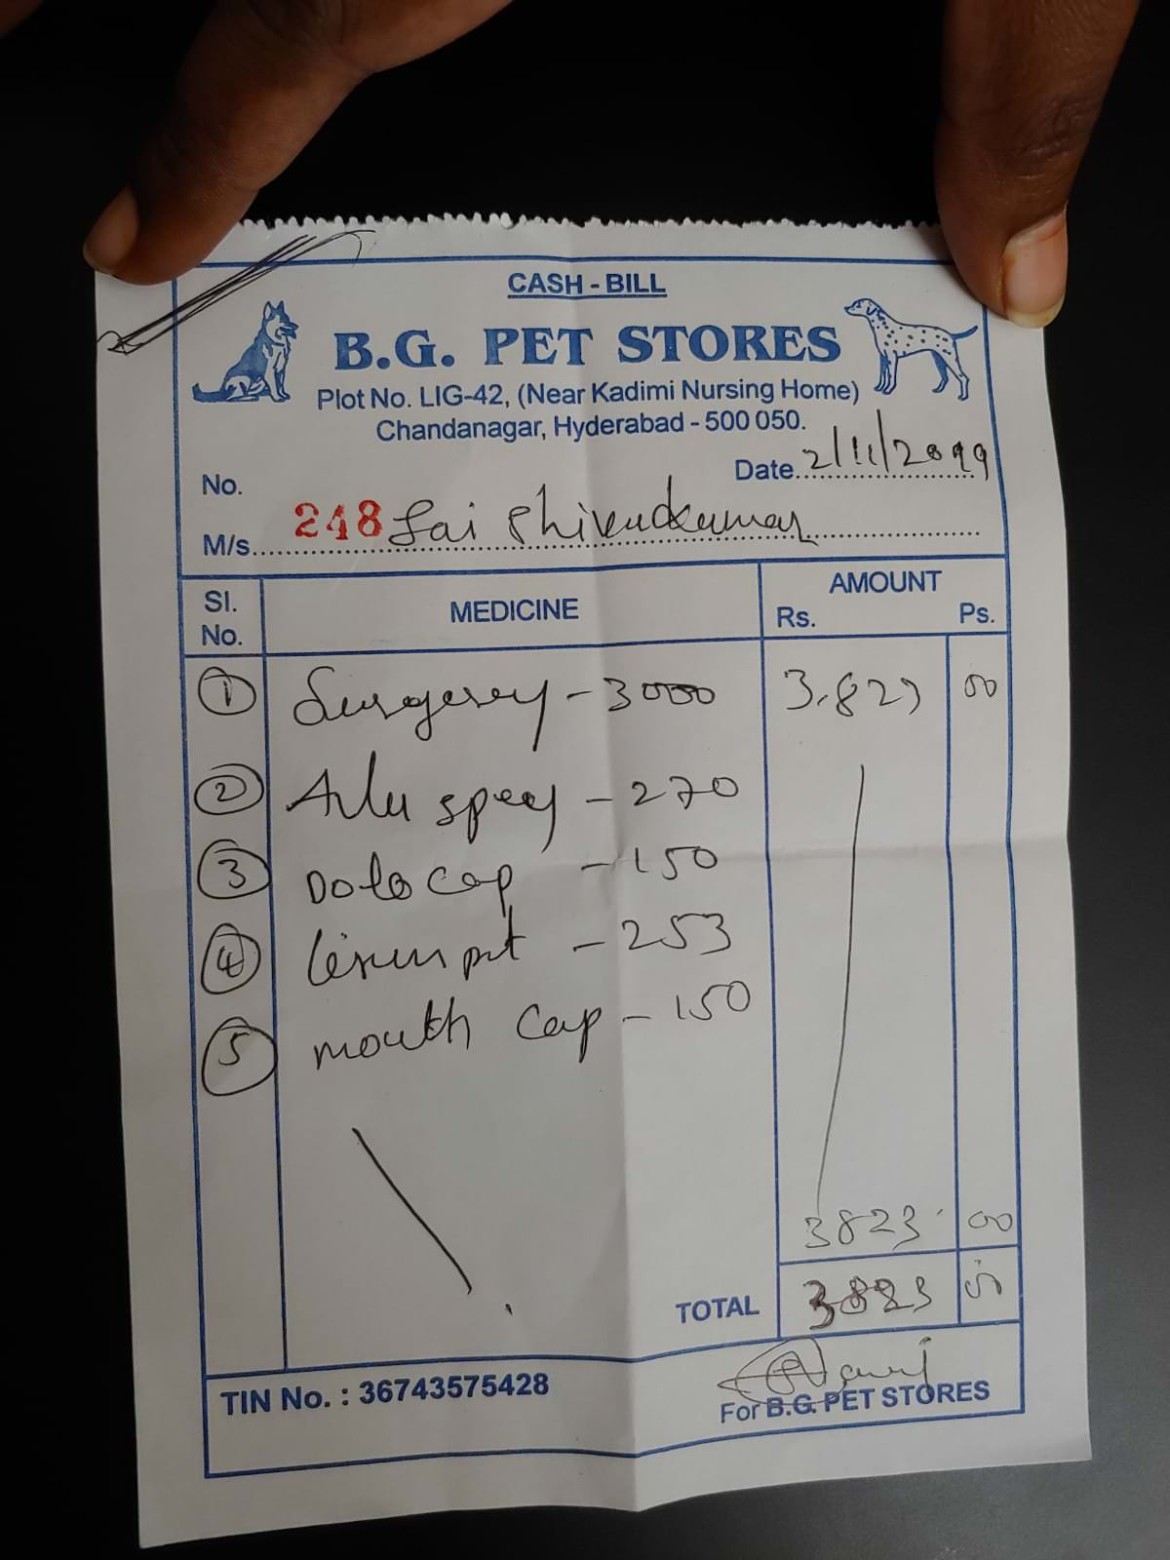 CASH - BILL
B.G. PET STORES
Plot No. LIG-42, (Near Kadimi Nursing Home)
Chandanagar, Hyderabad - 500 050.
No. 248
Date 2/11/2019
M/s. Sai Shivakumar
Sl. No. MEDICINE AMOUNT Rs. Ps.
1 Surgery - 3000 3,823 00
2 spray - 270
3 Dolo cap - 150
4 pet - 253
5 mouth cap - 150
3823 00
TOTAL 3823 00
TIN No. : 36743575428
For B.G. PET STORES